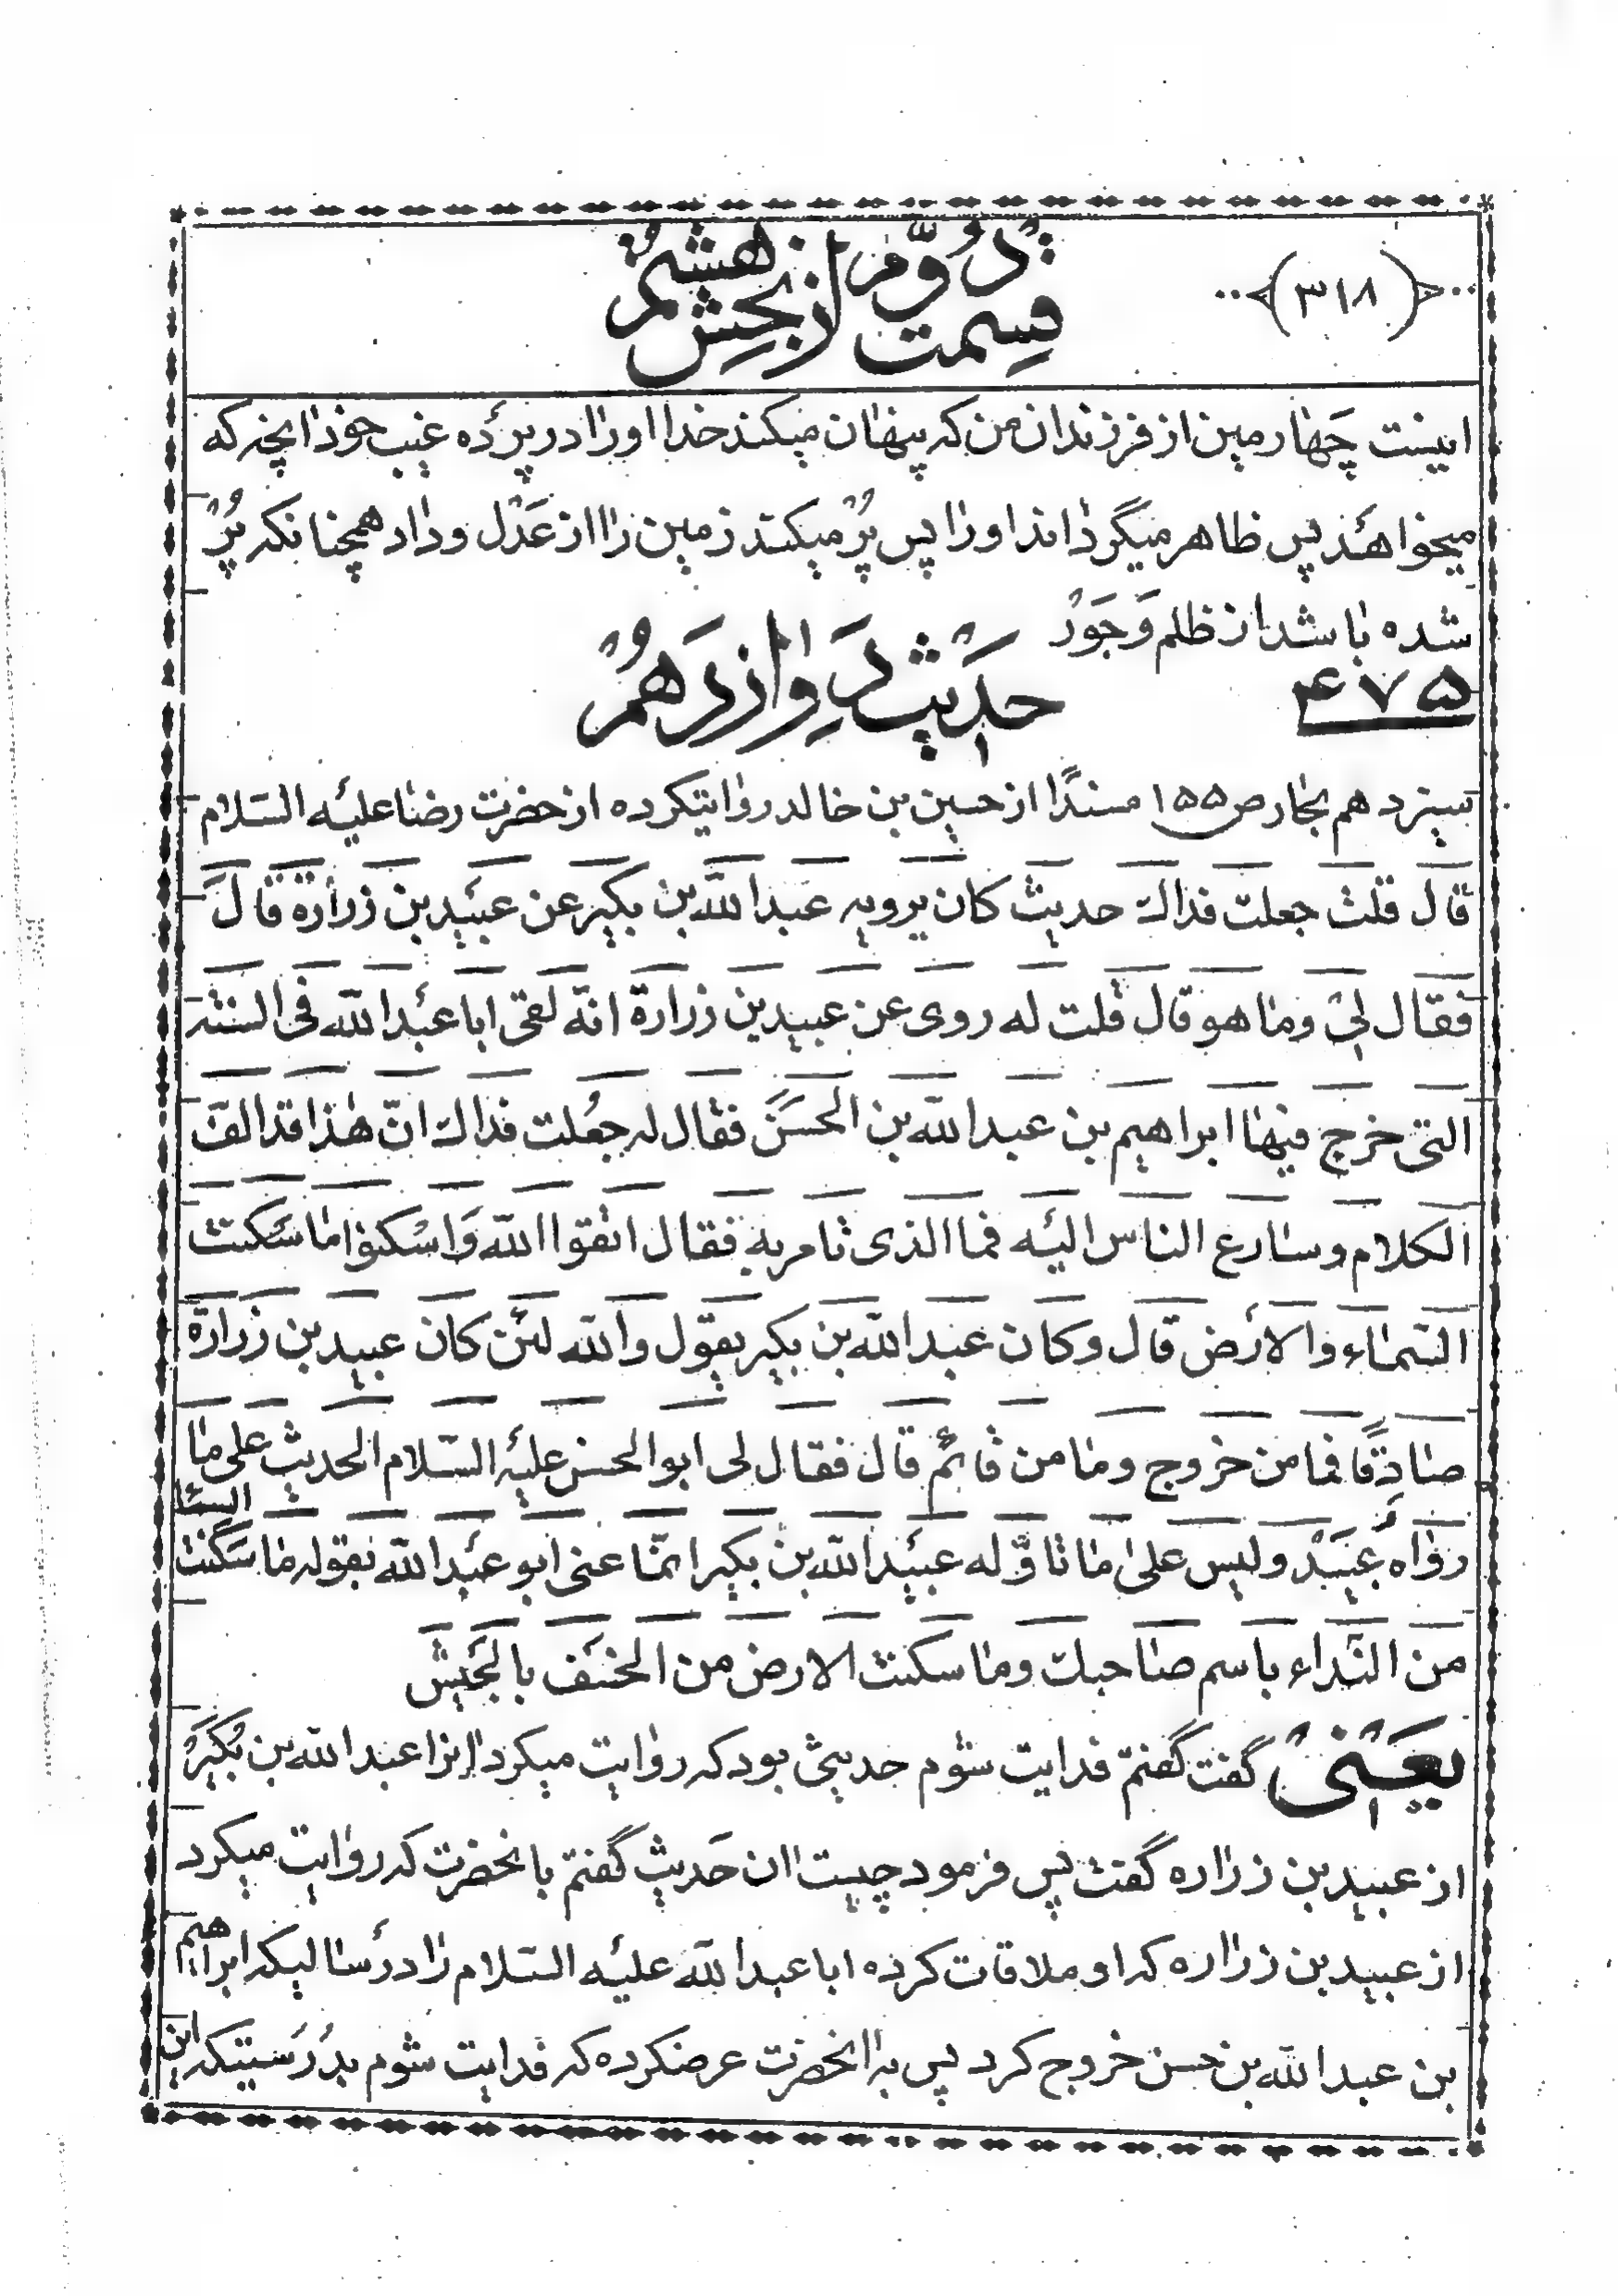 (۳۱۸)
قسمت دوّم از بخش هشتم
اینست چهارمین از فرزندان من که پنهان میکند خدا او را در پرده غیب خود انچه که
میخواهد پس ظاهر میگرداند او را پس پُر میکند زمین را از عَدل و داد همچنانکه پُر
شده باشد از ظلم وَجَور
۴۷۵
حدیث دوازدهم
سیزدهم بحار ص۱۵۵ مسندًا از حسین بن خالد روایتکرده از حضرت رضا علیه السّلام
قال قلت جعلت فداك حدیث کان یرویه عبدالله بن بکیر عن عبید بن زرارة قالَ
فقال لی وما هو قال قلت له روی عن عبید بن زرارة انّه لقی ابا عبدالله فی السنة
التی خرج فیها ابراهیم بن عبدالله بن الحسن فقال له جعلت فداك انّ هذا قد الف
الکلام وسارع الناس الیه فما الذی تامر به فقال اتقوا الله وَاسْکنوا ما سَکنت
السّماء والارض قال وکان عبدالله بن بکیر یقول والله لئن کان عبید بن زرارة
صادقًا فما من خروج وما من قائم قال فقال لی ابوالحسن علیه السّلام الحدیث علی ما
رواه عُبَیْد ولیس علی ما تاوّله عبیدالله بن بکیر انّما عنی ابو عبدالله بقوله ما سَکنت السّماء
من النّداء باسم صاحبك وما سکنت الارض من الخسف بالجَیش
یعنی گفت گفتم فدایت شوم حدیثی بود که روایت میکرد انرا عبدالله بن بُکَیر
از عبید بن زراره گفت پس فرمود چیست ان حدیث گفتم بانحضرت که روایت میکرد
از عبید بن زراره که او ملاقات کرده ابا عبدالله علیه السّلام را در سالیکه ابراهیم
بن عبدالله بن حسن خروج کرد پس به انحضرت عرضکرده که فدایت شوم بدُرُستیکه این